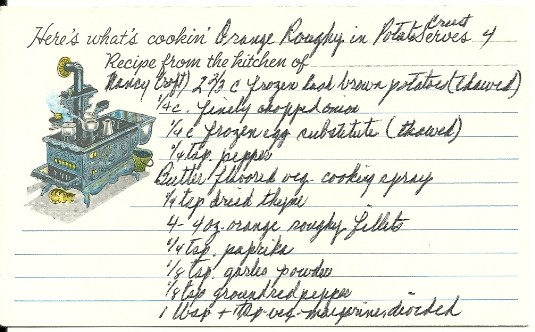 Here's what's cookin' Orange Roughy in Potato Crust Serves 4
Recipe from the kitchen of
Nancy Croft) 2 2/3 c frozen hash brown potatoes (thawed)
1/4 c. finely chopped onion
1/4 c frozen egg substitute (thawed)
1/4 tsp. pepper
Butter flavored veg. cooking spray
1/4 tsp dried thyme
4 - 4 oz. orange roughy fillets
1/4 tsp. paprika
1/8 tsp. garlic powder
1/8 tsp ground red pepper
1 tbsp + tsp veg. margarine, divided